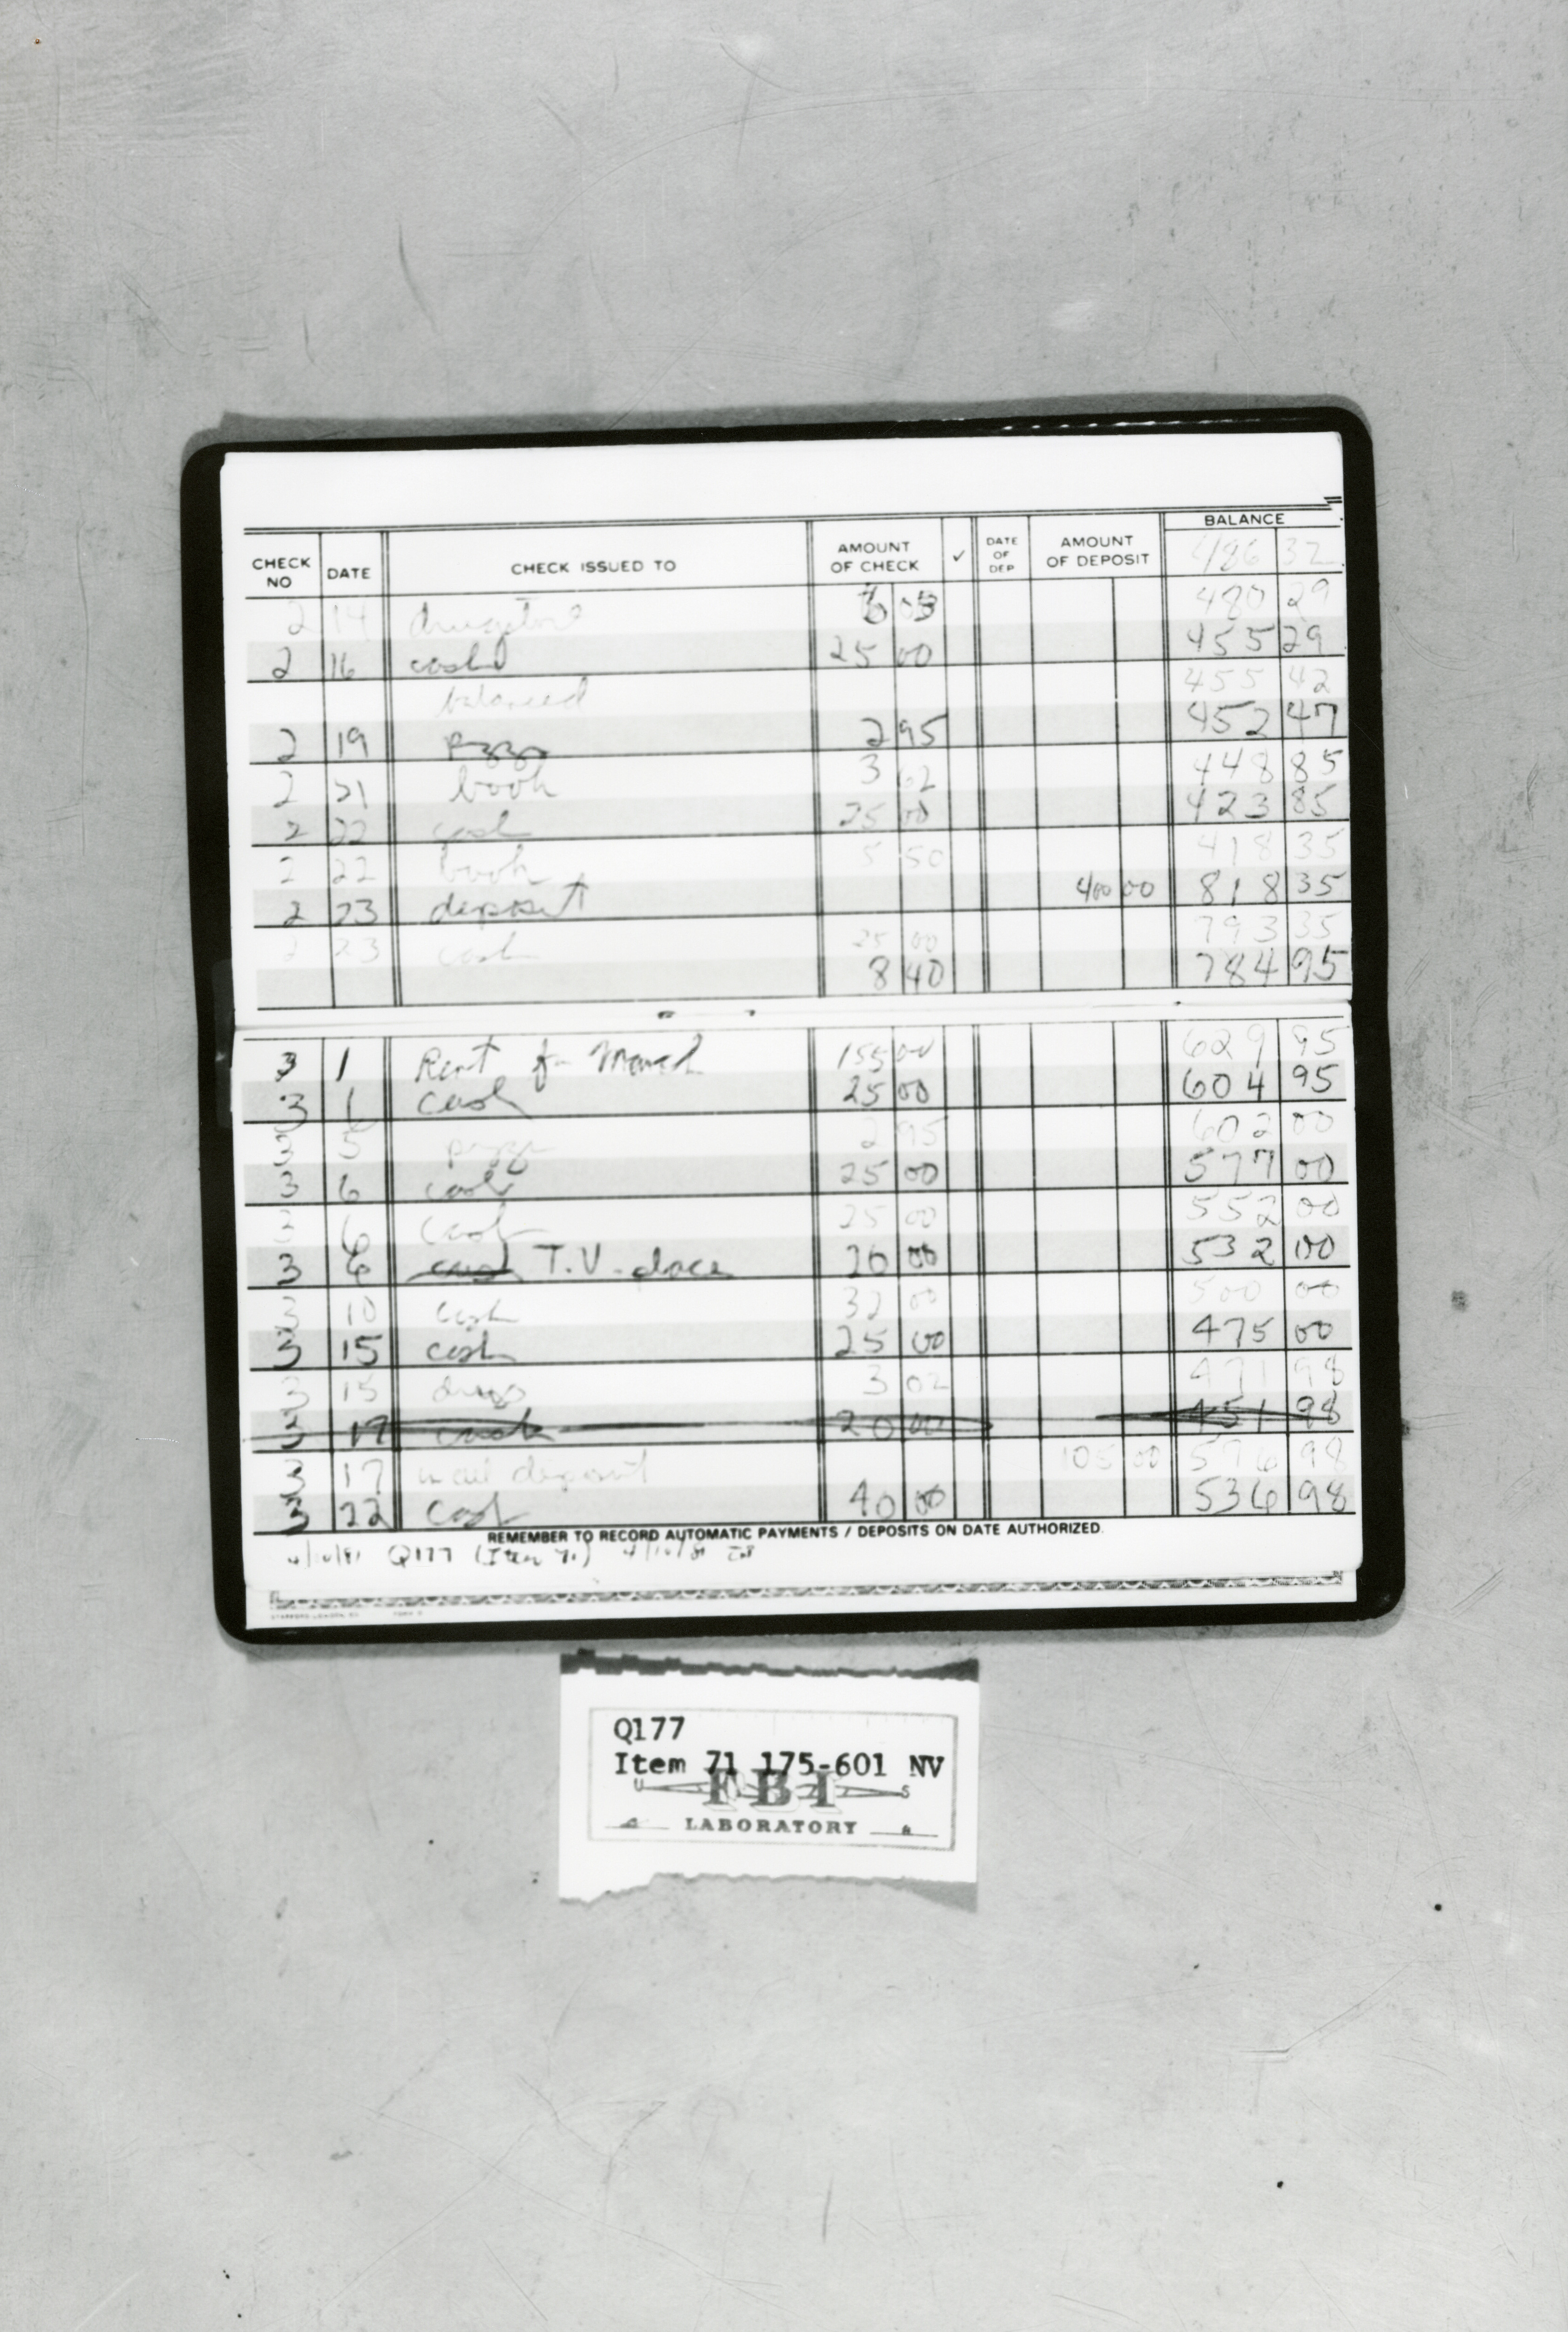 BALANCE
CHECK NO DATE CHECK ISSUED TO AMOUNT OF CHECK ✓ DATE OF DEP AMOUNT OF DEPOSIT 486 32
2 14 drugstore 6 03 480 29
2 16 cash 25 00 455 29
balanced 455 42
2 19 pizza 2 95 452 47
2 21 book 3 62 448 85
2 22 cash 25 00 423 85
2 22 book 5 50 418 35
2 23 deposit 400 00 818 35
2 23 cash 25 00 793 35
8 40 784 95
3 1 Rent for March 155 00 629 95
3 1 cash 25 00 604 95
3 5 pizza 2 95 602 00
3 6 cash 25 00 577 00
3 6 cash 25 00 552 00
3 6 cash T.V. place 20 00 532 00
3 10 cash 32 00 500 00
3 15 cash 25 00 475 00
3 15 drugs 3 02 471 98
3 17 cash 20 00 451 98
3 17 mail deposit 105 00 576 98
3 22 cash 40 00 536 98
REMEMBER TO RECORD AUTOMATIC PAYMENTS / DEPOSITS ON DATE AUTHORIZED.
4/10/81 Q177 (Item 71) 4/10/81
Q177
Item 71 175-601 NV
FBI
LABORATORY